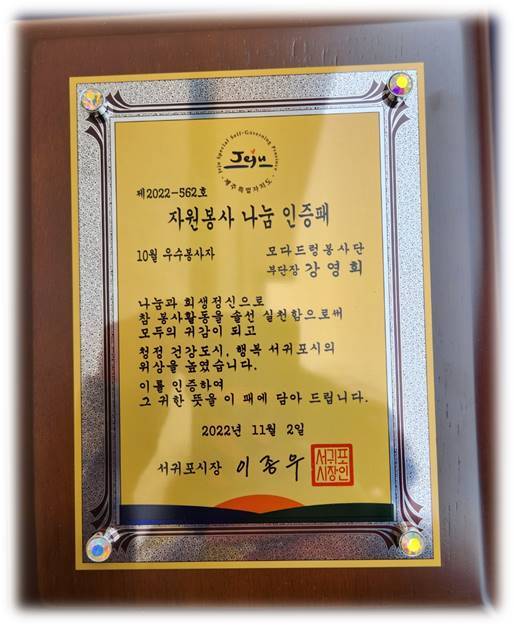 Jeju Special Self-Governing Province
Jeju
제주특별자치도
제2022-562호
자원봉사 나눔 인증패
10월 우수봉사자
모다드렁봉사단
부단장 강영희
나눔과 희생정신으로
참 봉사활동을 솔선 실천함으로써
모두의 귀감이 되고
청정 건강도시, 행복 서귀포시의
위상을 높였습니다.
이를 인증하여
그 귀한 뜻을 이 패에 담아 드립니다.
2022년 11월 2일
서귀포시장 이종우
서귀포
시장인